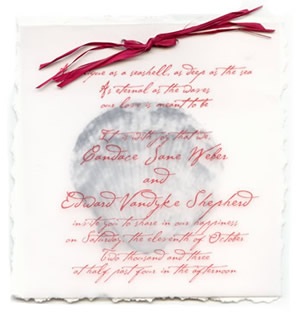 as a seashell, as deep as the sea
As eternal as the waves
our love is meant to be
It is with joy that we
Candace Jane Weber
and
Edward Vandyke Shepherd
invite you to share in our happiness
on Saturday, the eleventh of October
Two thousand and three
at half past four in the afternoon